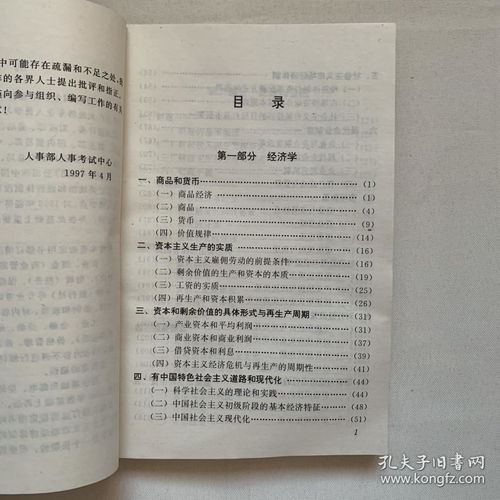 中可能存在疏漏和不足之处,
的各界人士提出批评和指正。
向参与组织、编写工作的有
人事部人事考试中心
1997年4月
目 录
第一部分 经济学
一、商品和货币 (1)
(一)商品经济 (1)
(二)商品 (4)
(三)货币 (9)
(四)价值规律 (14)
二、资本主义生产的实质 (16)
(一)资本主义雇佣劳动的前提条件 (16)
(二)剩余价值的生产和资本的本质 (19)
(三)工资的实质 (25)
(四)再生产和资本积累 (26)
三、资本和剩余价值的具体形式与再生产周期 (31)
(一)产业资本和平均利润 (31)
(二)商业资本和商业利润 (37)
(三)借贷资本和利息 (39)
(四)资本主义经济危机与再生产的周期性 (41)
四、有中国特色社会主义道路和现代化 (44)
(一)科学社会主义的理论和实践 (44)
(二)中国社会主义初级阶段的基本经济特征 (48)
(三)中国社会主义现代化 (51)
1
孔夫子旧书网
www.kongfz.com